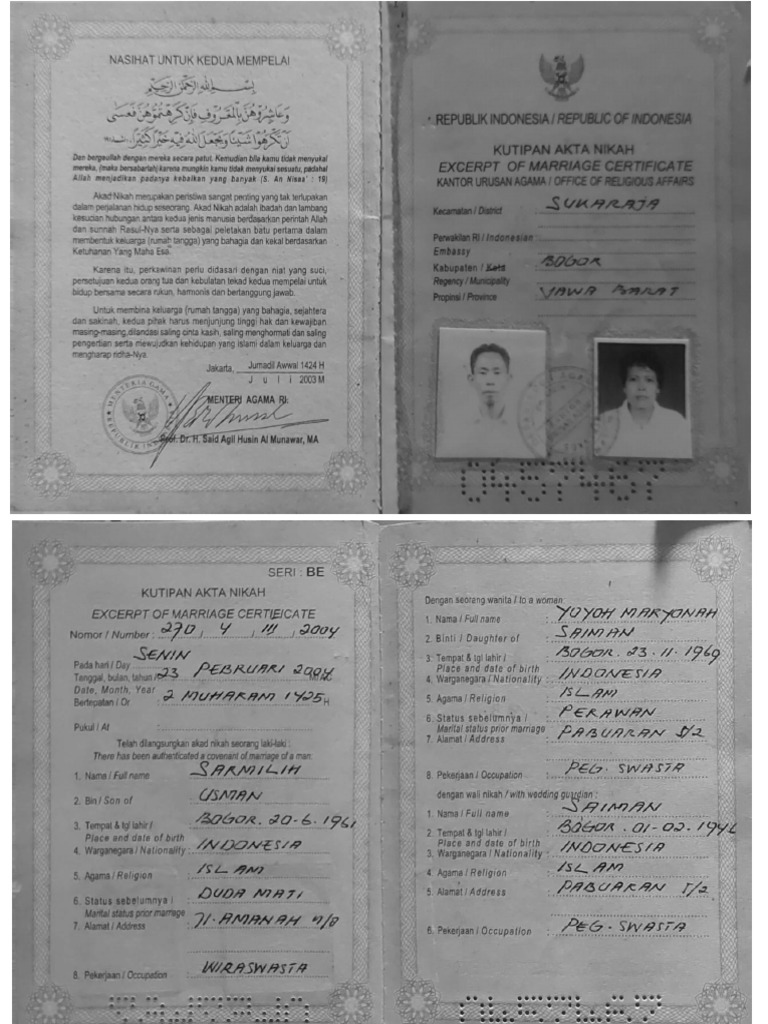 NASIHAT UNTUK KEDUA MEMPELAI
بِسْمِ اللهِ الرَّحْمٰنِ الرَّحِيْمِ
وَعَاشِرُوْهُنَّ بِالْمَعْرُوْفِ فَاِنْ كَرِهْتُمُوْهُنَّ فَعَسٰى
اَنْ تَكْرَهُوْا شَيْئًا وَيَجْعَلَ اللهُ فِيْهِ خَيْرًا كَثِيْرًا
Dan bergaullah dengan mereka secara patut. Kemudian bila kamu tidak menyukai
mereka, (maka bersabarlah) karena mungkin kamu tidak menyukai sesuatu, padahal
Allah menjadikan padanya kebaikan yang banyak (S. An Nisaa' : 19)
Akad Nikah merupakan peristiwa sangat penting yang tak terlupakan
dalam perjalanan hidup seseorang. Akad Nikah adalah ibadah dan lambang
kesucian hubungan antara kedua jenis manusia berdasarkan perintah Allah
dan sunnah Rasul-Nya serta sebagai peletakan batu pertama dalam
membentuk keluarga (rumah tangga) yang bahagia dan kekal berdasarkan
Ketuhanan Yang Maha Esa.
Karena itu, perkawinan perlu didasari dengan niat yang suci,
persetujuan kedua orang tua dan kebulatan tekad kedua mempelai untuk
hidup bersama secara rukun, harmonis dan bertanggung jawab.
Untuk membina keluarga (rumah tangga) yang bahagia, sejahtera
dan sakinah, kedua pihak harus menjunjung tinggi hak dan kewajiban
masing-masing, dilandasi saling cinta kasih, saling menghormati dan saling
pengertian serta mewujudkan kehidupan yang islami dalam keluarga dan
mengharap ridha-Nya.
Jakarta, Jumadil Awwal 1424 H
J u l i 2003 M
MENTERI AGAMA RI.
MENTERI AGAMA
REPUBLIK INDONESIA
Prof. Dr. H. Said Agil Husin Al Munawar, MA
REPUBLIK INDONESIA / REPUBLIC OF INDONESIA
KUTIPAN AKTA NIKAH
EXCERPT OF MARRIAGE CERTIFICATE
KANTOR URUSAN AGAMA / OFFICE OF RELIGIOUS AFFAIRS
Kecamatan / District : SUKARAJA
Perwakilan RI / Indonesian :
Embassy
Kabupaten / Kota : BOGOR
Regency / Municipality
Propinsi / Province : JAWA BARAT
SERI : BE
KUTIPAN AKTA NIKAH
EXCERPT OF MARRIAGE CERTIFICATE
Nomor / Number : 270 / 4 / III / 2004
Pada hari / Day SENIN
Tanggal, bulan, tahun / 23 PEBRUARI 2004 M
Date, Month, Year
Bertepatan / Or 2 MUHARAM 1425 H
Pukul / At :
Telah dilangsungkan akad nikah seorang laki-laki :
There has been authenticated a covenant of marriage of a man:
1. Nama / Full name : SARMILIH
2. Bin / Son of : USMAN
3. Tempat & tgl lahir / : BOGOR. 20-6. 1961
Place and date of birth
4. Warganegara / Nationality : INDONESIA
5. Agama / Religion : ISLAM
6. Status sebelumnya / : DUDA MATI
Marital status prior marriage
7. Alamat / Address : Jl. AMANAH
8. Pekerjaan / Occupation : WIRASWASTA
Dengan seorang wanita / to a woman:
1. Nama / Full name : YOYOH MARYONAH
2. Binti / Daughter of : SAIMAN
3. Tempat & tgl lahir / : BOGOR. 23-11-1969
Place and date of birth
4. Warganegara / Nationality : INDONESIA
5. Agama / Religion : ISLAM
6. Status sebelumnya / : PERAWAN
Marital status prior marriage
7. Alamat / Address : PABUARAN 5/2
8. Pekerjaan / Occupation : PEG. SWASTA
dengan wali nikah / with wedding guardian :
1. Nama / Full name : SAIMAN
2. Tempat & tgl lahir / : BOGOR. 01-02.
Place and date of birth
3. Warganegara / Nationality : INDONESIA
4. Agama / Religion : ISLAM
5. Alamat / Address : PABUARAN 5/2
6. Pekerjaan / Occupation : PEG. SWASTA